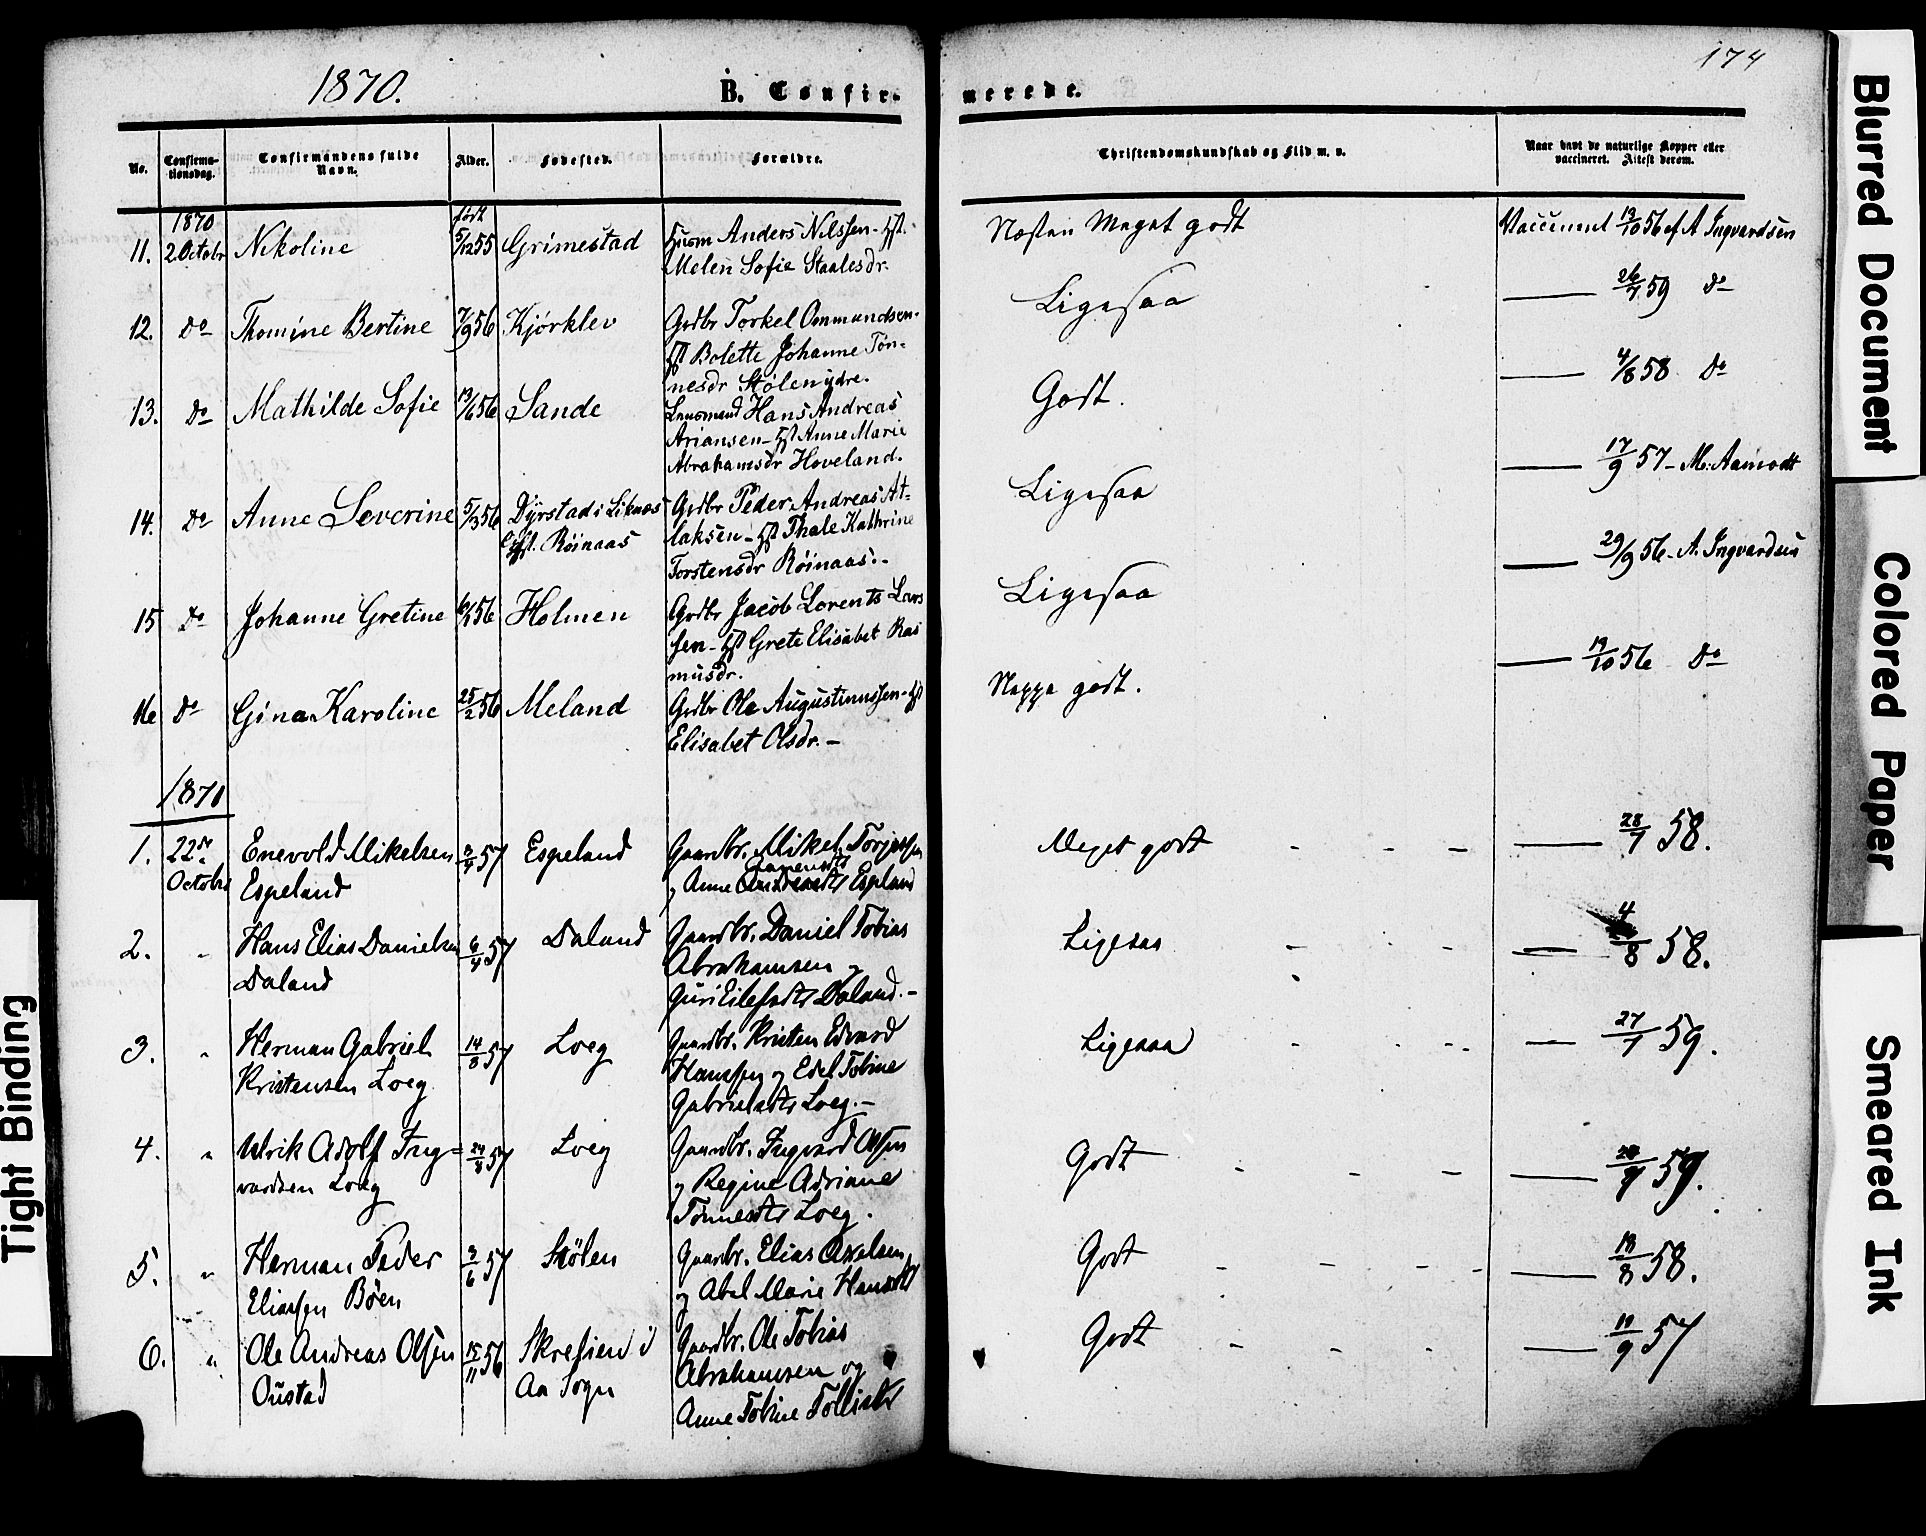 174
1870. B. Confirmerede.
No. Confirmationsdag. Confirmandens fulde Navn. Alder. Fødested. Forældre. Christendomskundskab og Flid m. v. Naar havt de naturlige Kopper eller vaccineret. Attest derom.
1870 født
11. 2 Octobr Nikoline 5/12 55 Grimestad Huusm Anders Nilssen - Hst. Næsten Meget godt Vaccineret 19/10 56 af A Ingvardsen
Melen Sofie Staalesdr.
12. Do Thomine Bertine 7/9 56 Kjørklev Grdbr Torkel Ommundsen - Ligesaa — 26/7 59 Do
Hst Bolette Johanne Tøn-
nesdr Stølen ydre.
13. Do Mathilde Sofie 13/6 56 Sande Lensmand Hans Andreas Godt. — 4/8 58 Do
Ariansen - Hst Anne Marie
Abrahamsdr Hoveland.
14. Do Anne Severine 5/3 56 Dyrstad i Liknæs Grdbr Peder Andreas At- Ligesaa — 17/9 57 - M. Aamodt
Røinaas laksen - Hst Thale Kathrine
Torstensdr Røinaas.-
15 Do Johanne Gretine 56 Holmen Grdbr Jacob Lorents Lars Ligesaa — 29/9 56 - A. Ingvardsen
sen - Hst Grete Elisabet Ras
musdr.
16 Do Gina Karoline 25/2 56 Meland Grdbr Ole Augustinussen - Hst Neppe godt. — 19/10 56 Do
Elisabet Olsdr. -
1871
1. 22de Enevold Mikelsen 57 Espeland Gaardbr. Mikel Torjussen Meget godt - - — — 28/7 58.
Octobr Espeland og Anne Espeland
2. " Hans Elias Danielsen 6/4 57 Daland Gaardbr. Daniel Tobias Ligesaa - - - — 4/8 58.
Daland Abrahamsen og
Guri Eilefsdtr Daland. -
3. " Herman Gabriel 14/8 57 Loeg Gaardbr. Kristen Edvard Ligesaa - - - — 27/7 59.
Kristensen Loeg Hanssen og Edel Tobine
Gabrielsdtr Loeg. -
4. " Ulrik Adolf Ing= 57 Loeg Gaardbr. Ingvard Olsen Godt - - - — 59.
vardsen Loeg og Regine Adriane
Tønnesdtr Loeg.
5. " Herman Peder 3/6 57 Stølen Gaardbr. Elias Axelsen Godt - - - - — 18/8 58.
Eliassen Bøen og Abel Marie Hansdtr
6. " Ole Andreas Olsen 15/11 56 Skrelien i Gaardbr. Ole Tobias Godt - - - — 19/9 57
Oustad Aa Sogn Abrahamsen og
Anne Tobine Tollisdtr
Blurred Document
Colored Paper
Smeared Ink
Tight Binding